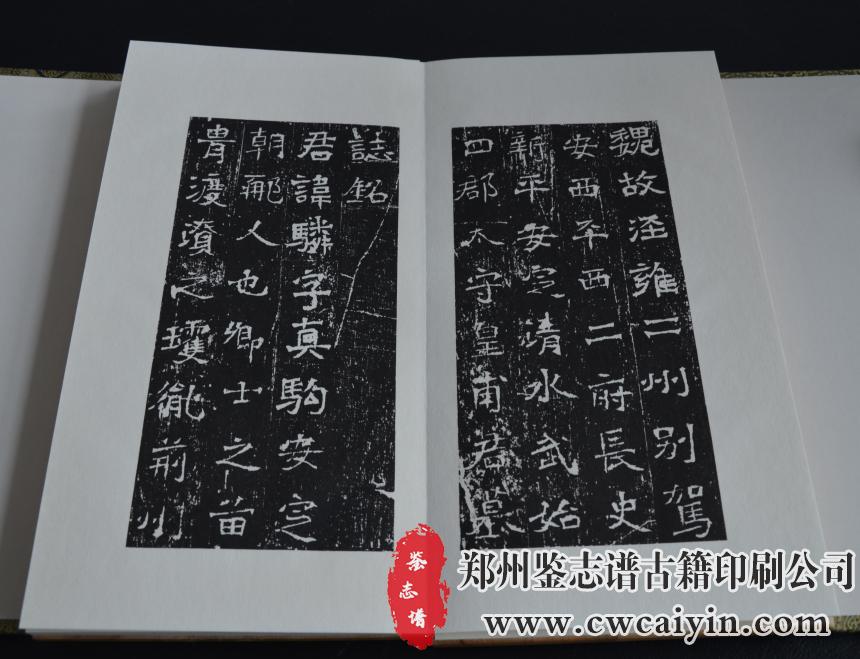 魏故涇雍二州别駕
安西平西二府長史
新平安定清水武始
四郡太守皇甫君墓
誌銘
君諱驎字真駒安定
朝郍人也卿士之苗
胄漫瀆之瓊胤荊州
鉴志谱
郑州鉴志谱古籍印刷公司
www.cwcaiyin.com